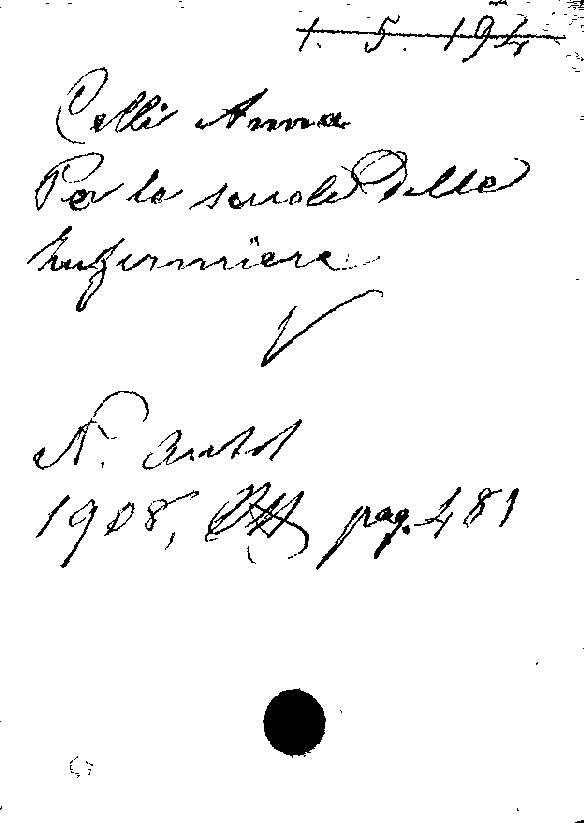 1. 5. 194
Celli Anna
Per la scuola delle
Infermiere
N. Antol
1908, pag. 481